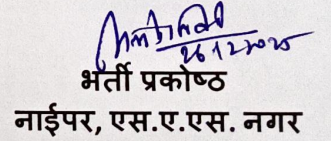 26/12/2025
भर्ती प्रकोष्ठ
नाईपर, एस.ए.एस. नगर